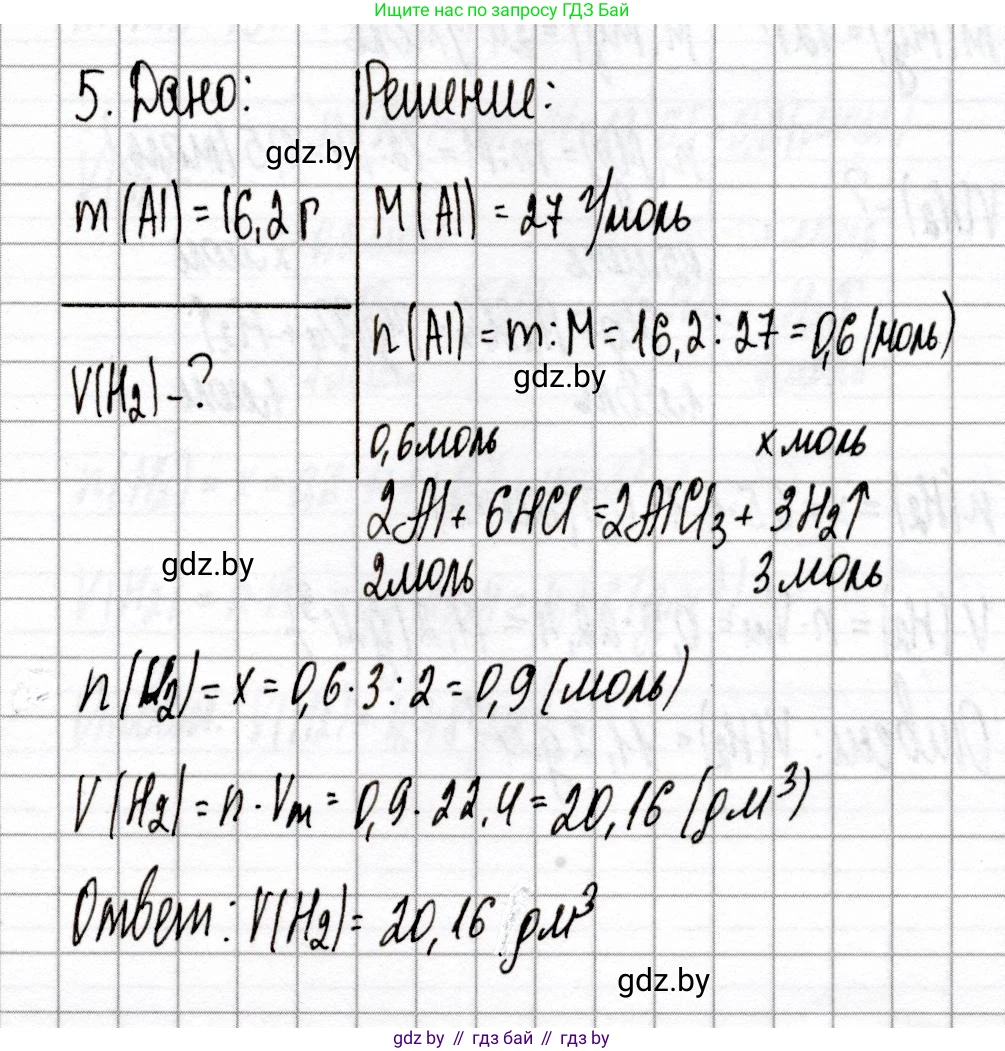 Ищите нас по запросу ГДЗ Бай
5. Дано:
Решение:
gdz.by
m(Al) = 16,2 г
M(Al) = 27 г/моль
n(Al) = m : M = 16,2 : 27 = 0,6 (моль)
gdz.by
V(H₂) - ?
0,6 моль x моль
2Al + 6HCl = 2AlCl₃ + 3H₂↑
gdz.by
2 моль 3 моль
n(H₂) = x = 0,6 · 3 : 2 = 0,9 (моль)
V(H₂) = n · Vm = 0,9 · 22,4 = 20,16 (дм³)
Ответ: V(H₂) = 20,16 дм³
gdz.by
gdz.by // гдз бай // гдз by